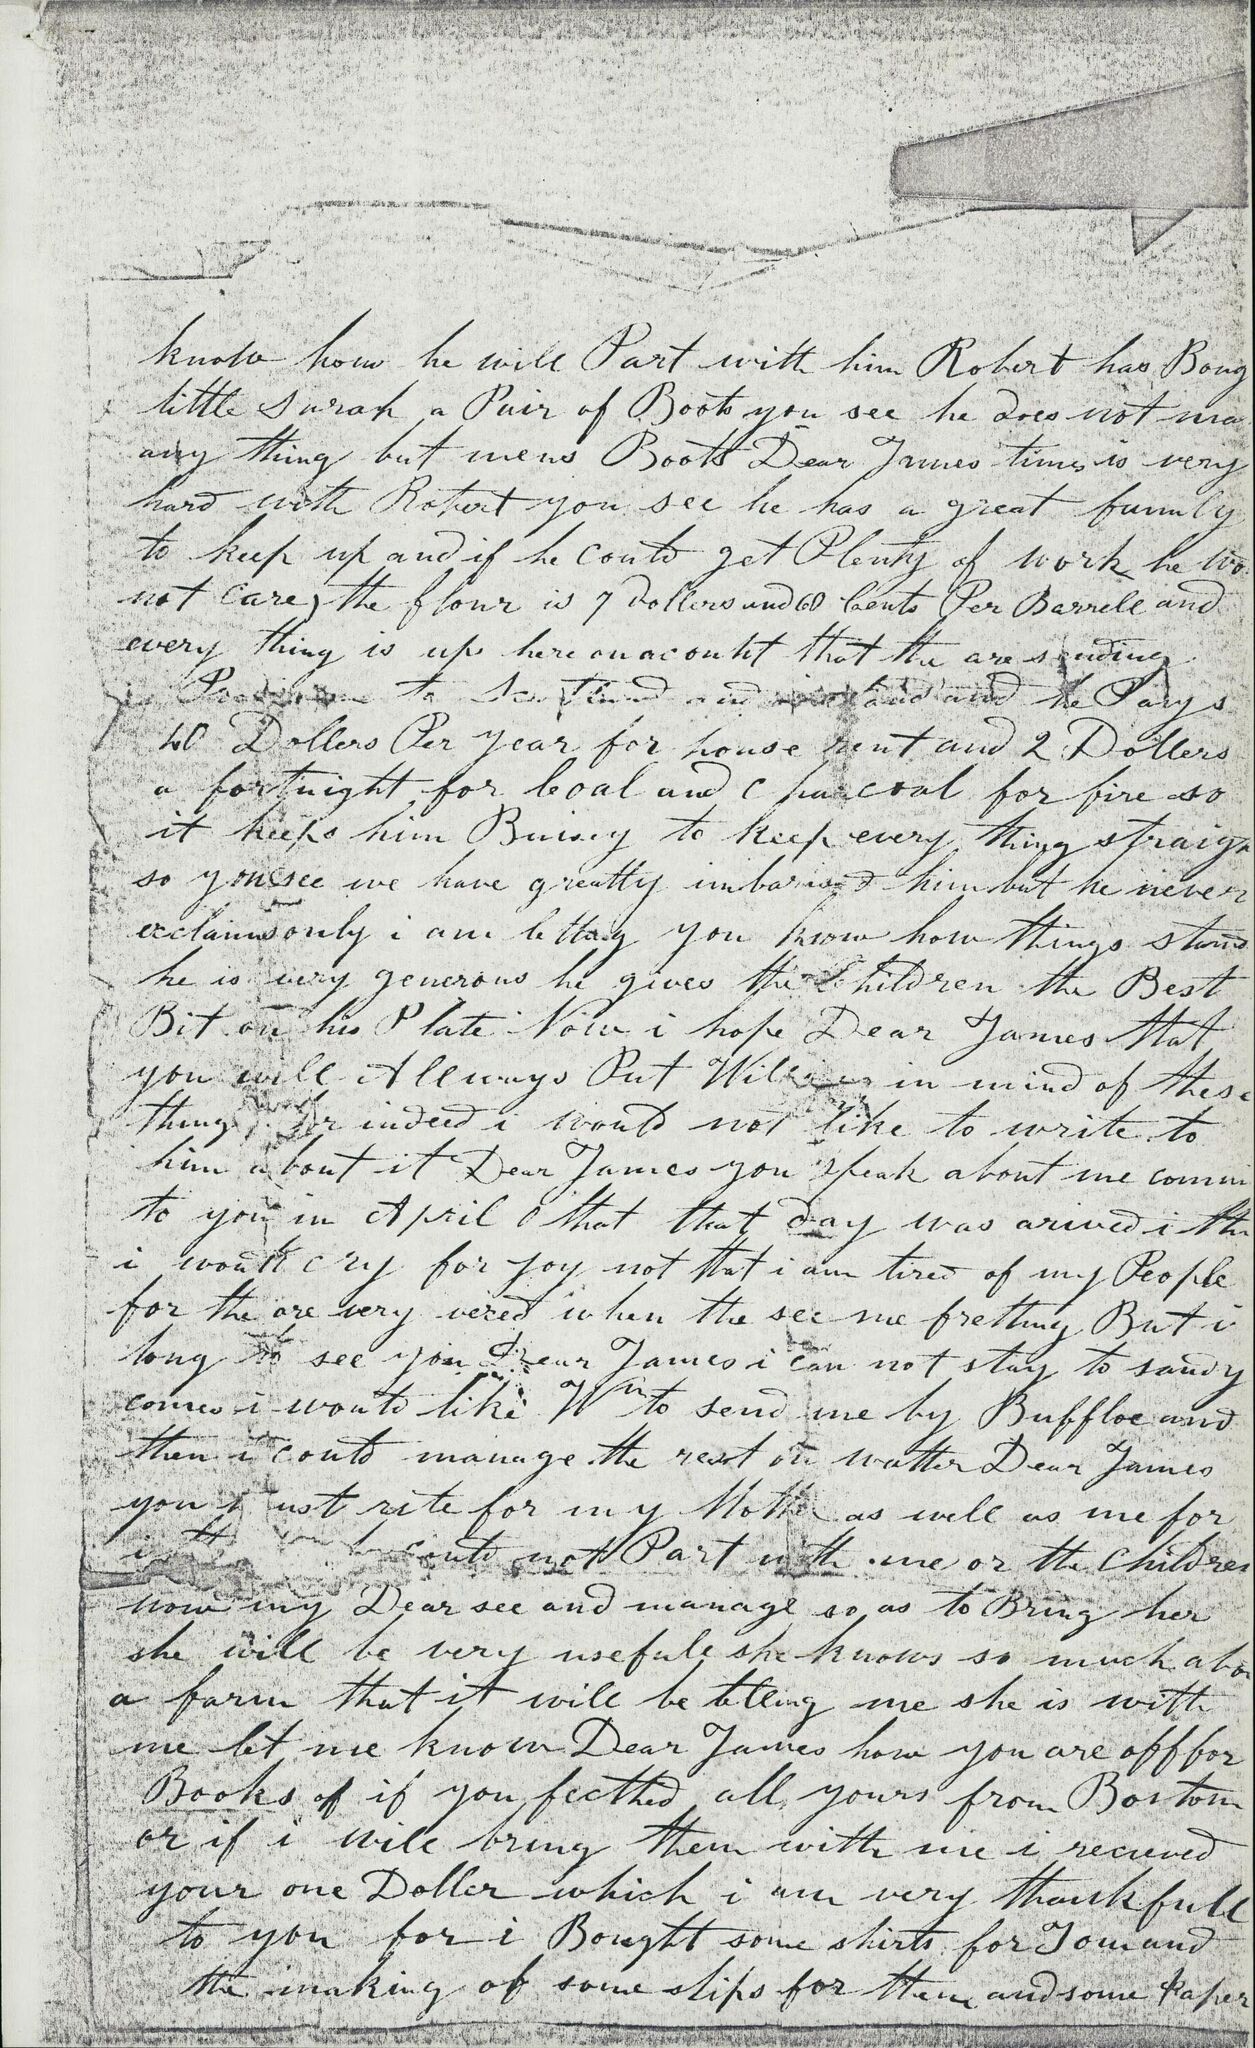 know how he will Part with him Robert has Boug
little Sarah a Pair of Boots you see he does not ma
any thing but mens Boots Dear James times is very
hard with Robert you see he has a great family
to keep up and if he could get Plenty of work he wo
not Care, the flour is 7 dollers and 60 Cents Per Barrell and
every thing is up here on acount that the are sending
to and and he Pays
40 Dollers Per year for house rent and 2 Dollers
a fortnight for Coal and Charcoal for fire so
it keeps him Buisey to keep every thing straig
so you see we have greatly imbarised him but he never
exclaims only i am letting you know how things stand
he is very generous he gives the Children the Best
Bit on his Plate Now i hope Dear James that
you will Allways Put William in mind of these
things for indeed i would not like to write to
him about it Dear James you speak about me comm
to you in April O that that day was arived i thi
i would cry for joy not that i am tired of my People
for the are very vexed when the see me fretting But i
long to see you Dear James i can not stay to sandy
comes i would like Wm to send me by Buffloe and
then i could manage the rest on watter Dear James
you must rite for my Mother as well as me for
could not Part with me or the Children
now my Dear see and manage so as to Bring her
she will be very usefull she knows so much abou
a farm that it will be telling me she is with
me let me know Dear James how you are off for
Books of if you fecthed all yours from Boston
or if i will bring them with me i recieved
your one Doller which i am very thankfull
to you for i Bought some shirts for Tom and
the making of some slips for them and some Paper